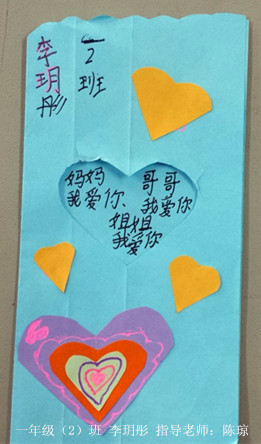 李玥彤
一2班
妈妈
我爱你、
哥哥
我爱你
姐姐
我爱你
一年级（2）班 李玥彤 指导老师：陈琼